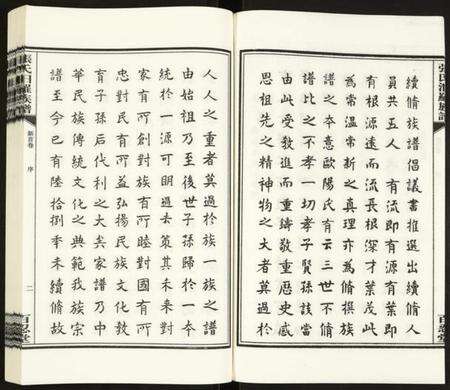 續脩族譜倡議書推選出續脩人
員共五人　有流即有源有葉即
有根源遠而流長根深才葉茂此
為常温常新之真理亦為脩撰族
譜之本意歐陽氏有云三世不脩
譜比之不孝一切孝子賢孫該當
由此受教進而重鑄敬重歷史感
恩祖先之精神物之大者莫過於
人人之重者莫過於族一族之譜
由始祖乃至後世子孫歸於一
統於一源可明過去策其未來對
家有所創對族有所睦對國有所
忠對民有所益弘揚民族文化教
育子孫后代利之大矣家譜乃中
華民族傳統文化之典範我族宗
譜至今已有陸拾捌年未續脩故
新首卷　序
二
百忍堂